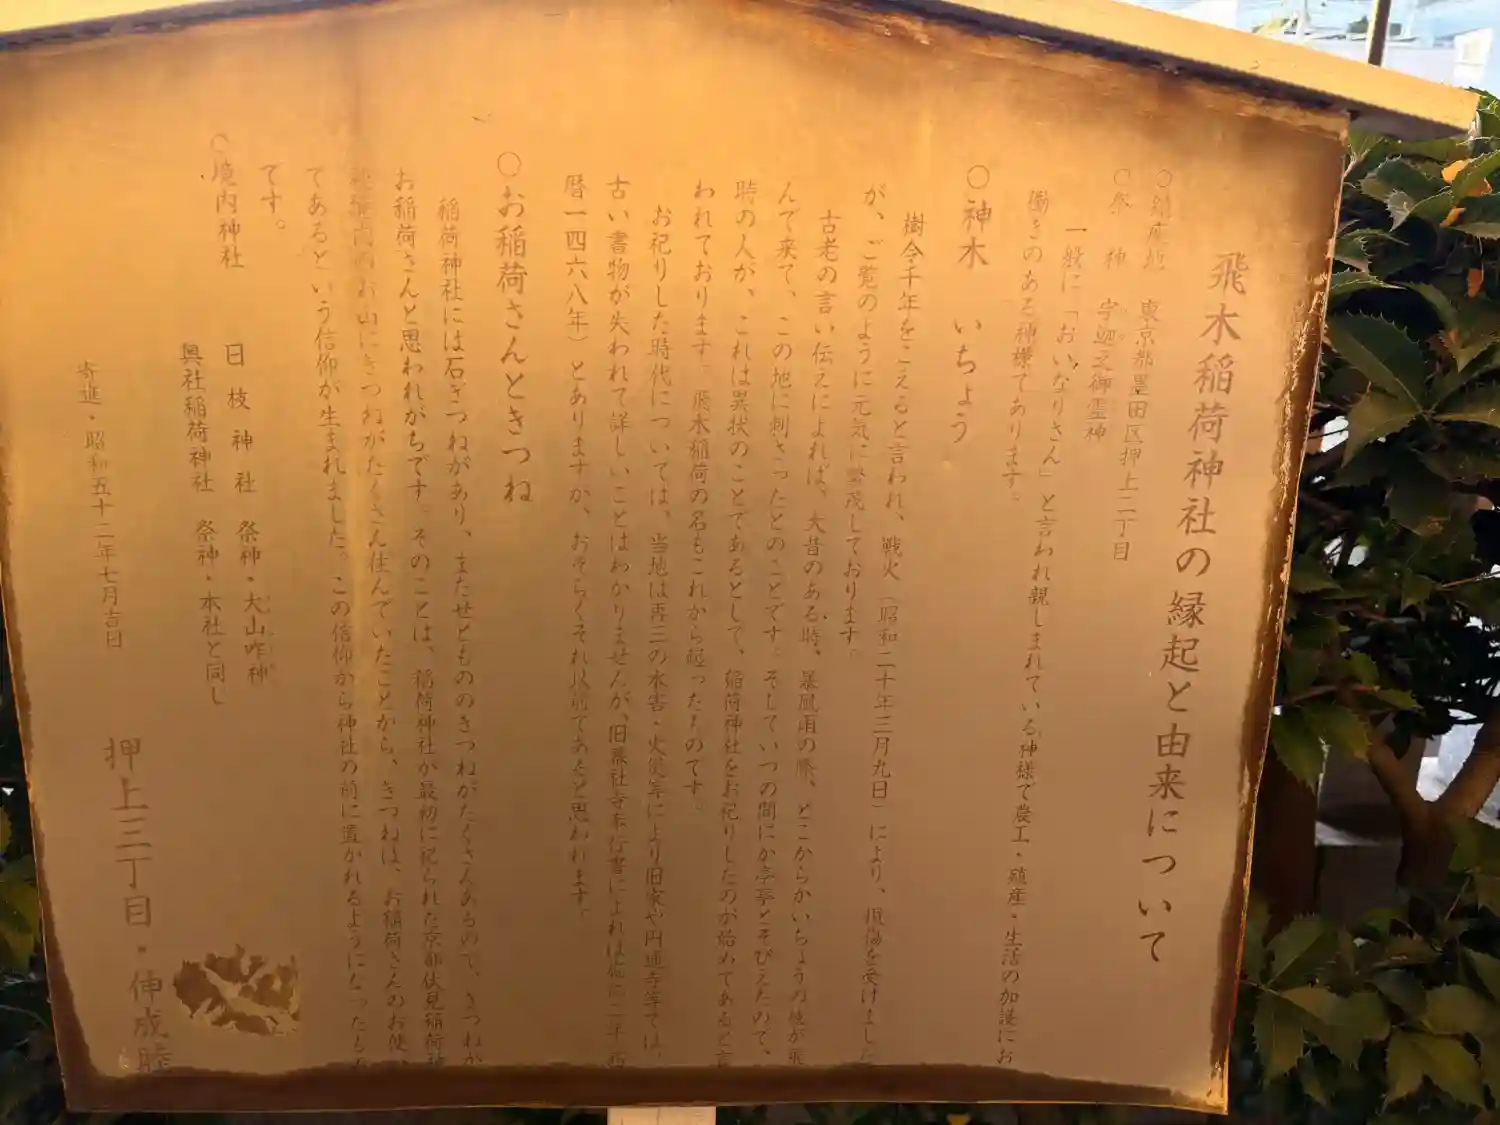 飛木稲荷神社の縁起と由来について
○鎮座地　東京都墨田区押上二丁目
○祭　神　宇迦之御霊神
一般に「おいなりさん」と言われ親しまれている神様で農工・殖産・生活の加護にお
働きのある神様であります。
○神木　いちょう
樹令千年をこえると言われ、戦火（昭和二十年三月九日）により、損傷を受けました
が、ご覧のように元気に繁茂しております。
古老の言い伝えによれば、大昔のある時、暴風雨の際、どこからかいちょうの枝が飛
んで来て、この地に刺さったとのことです。そしていつの間にか亭亭とそびえたので、
時の人が、これは異状のことであるとして、稲荷神社をお祀りしたのが始めであると言
われております。飛木稲荷の名もこれから起ったものです。
お祀りした時代については、当地は再三の水害・火災等により旧家や円通寺等では、
古い書物が失われて詳しいことはわかりませんが、旧
暦一四六八年）とありますが、おそらくそれ以前であると思われます。
○お稲荷さんときつね
稲荷神社には石ぎつねがあり、またせともののきつねがたくさんあるので、きつねが
お稲荷さんと思われがちです。そのことは、稲荷神社が最初に祀られた京都伏見稲荷神
お山にきつねがたくさん住んでいたことから、きつねは、お稲荷さんのお使
であるという信仰が生まれました。この信仰から神社の前に置かれるようになったもの
です。
○境内神社　日枝神社　祭神・大山咋神
興社稲荷神社　祭神・本社と同じ
寄進・昭和五十二年七月吉日
押上三丁目・伸成睦